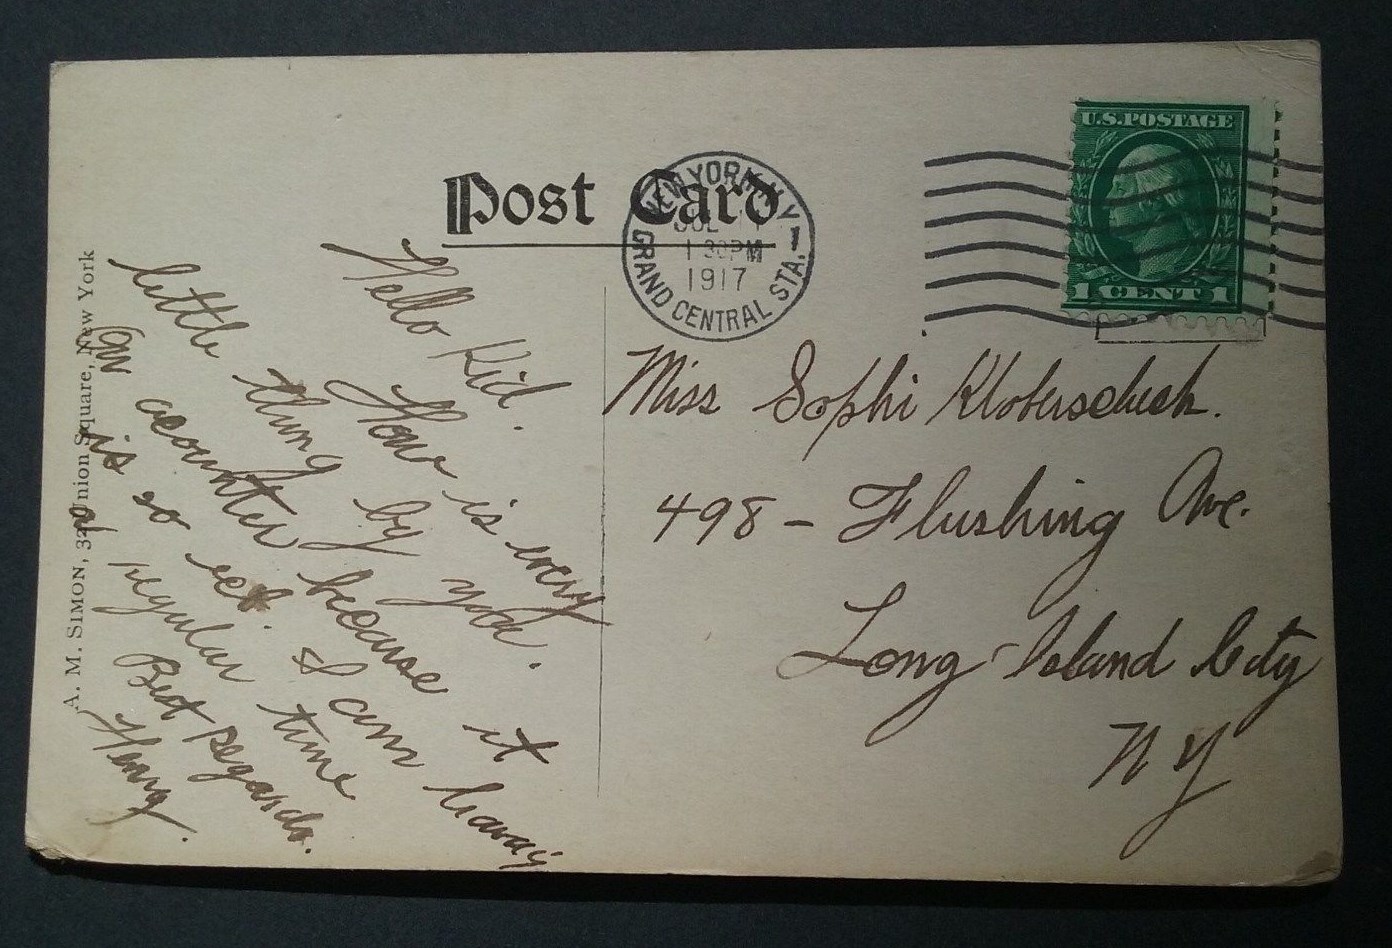 Post Card
NEW YORK, N.Y. 1
JUL
1 30PM
1917
GRAND CENTRAL STA.
U.S. POSTAGE
1 CENT 1
A. M. SIMON, 32 Union Square, New York
Hello Kid.
How is every
little thing by you.
On acounter because it
is so
I am having
a regular time
Best regards.
Henry.
Miss Sophi
498 - Flushing Ave.
Long Island City
N Y